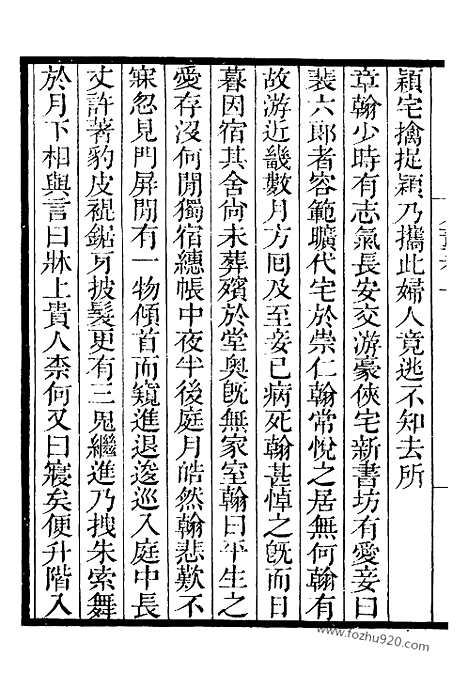 穎宅擒捉穎乃攜此婦人竟逃不知去所
韋翰少時有志氣長安交游豪俠宅新書坊有愛妾曰
裴六郎者容範曠代宅於崇仁翰常悅之居無何翰有
故游近畿數月方囘及至妾已病死翰甚悼之既而日
暮因宿其舍尙未葬殯於堂奥既無家室翰曰平生之
愛存沒何閒獨宿繐帳中夜半後庭月皓然翰悲歎不
寐忽見門屏閒有一物傾首而窺進退逡巡入庭中長
丈許著豹皮裩鋸牙披髮更有三鬼繼進乃拽朱索舞
於月下相與言曰牀上貴人柰何又曰寢矣便升階入
www.fozhu920.com